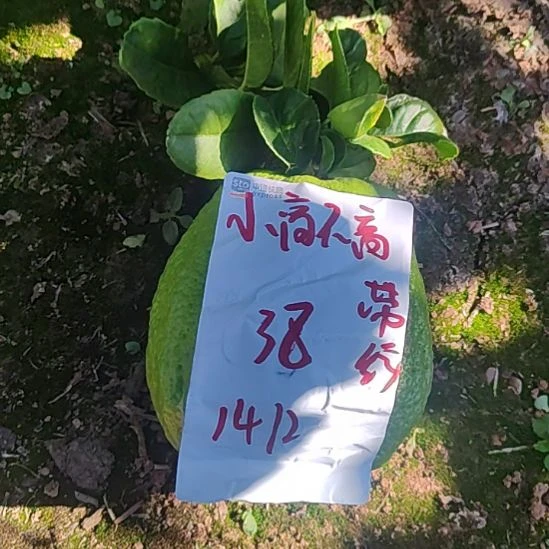 sto 申通快递
EXPRESS
小高不高
38
带
1412